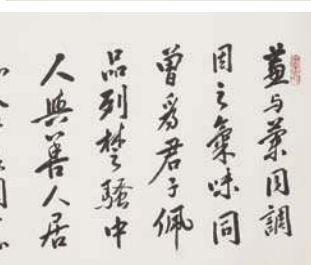 蕙与蘭同調
因之氣味同
曾爲君子佩
品列楚騷中
人與善人居